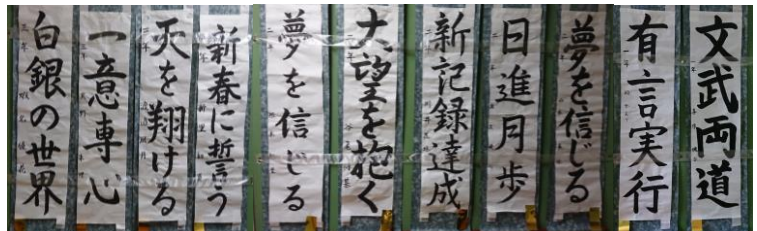 文武両道
有言実行
夢を信じる
日進月歩
新記録達成
大望を抱く
夢を信じる
新春に誓う
天を翔ける
一意専心
白銀の世界